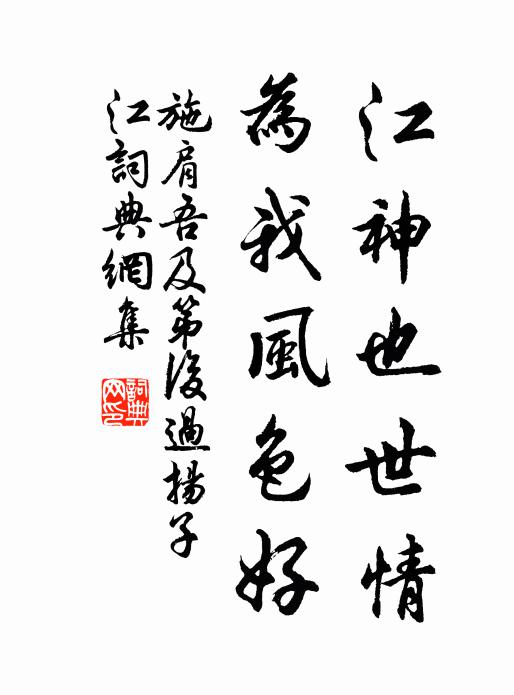 江神也世情
為我風色好
施肩吾及第後過揚子
江詞典網集
詞典
网印